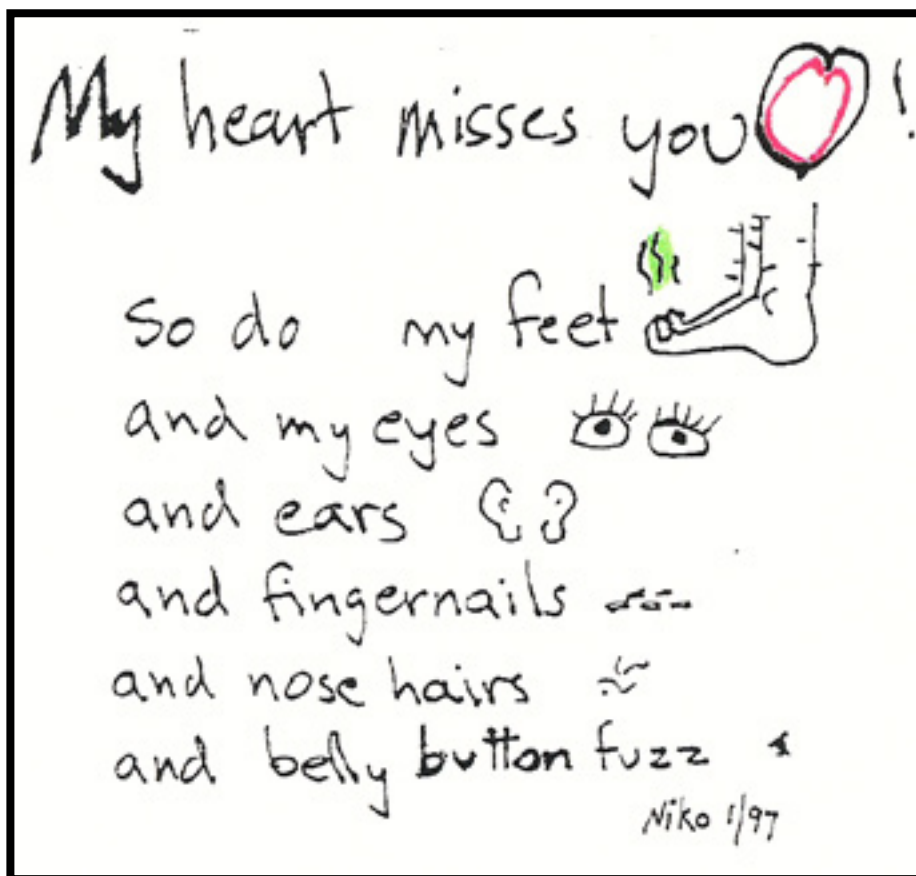 My heart misses you !
So do my feet
and my eyes
and ears
and fingernails
and nose hairs
and belly button fuzz
Niko 1/97